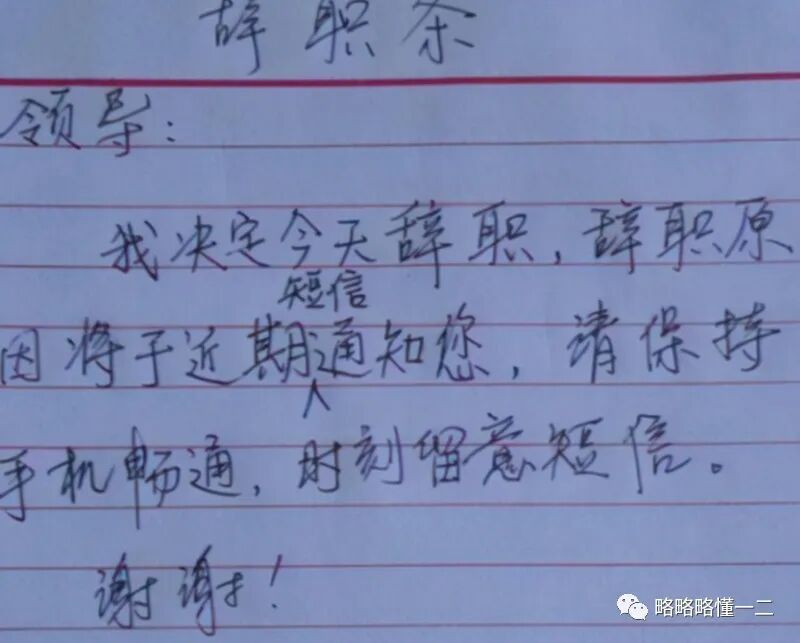 辞职条
领导:
我决定今天辞职,辞职原
短信
因将于近期通知您,请保持
手机畅通,时刻留意短信。
谢谢!
略略略懂一二